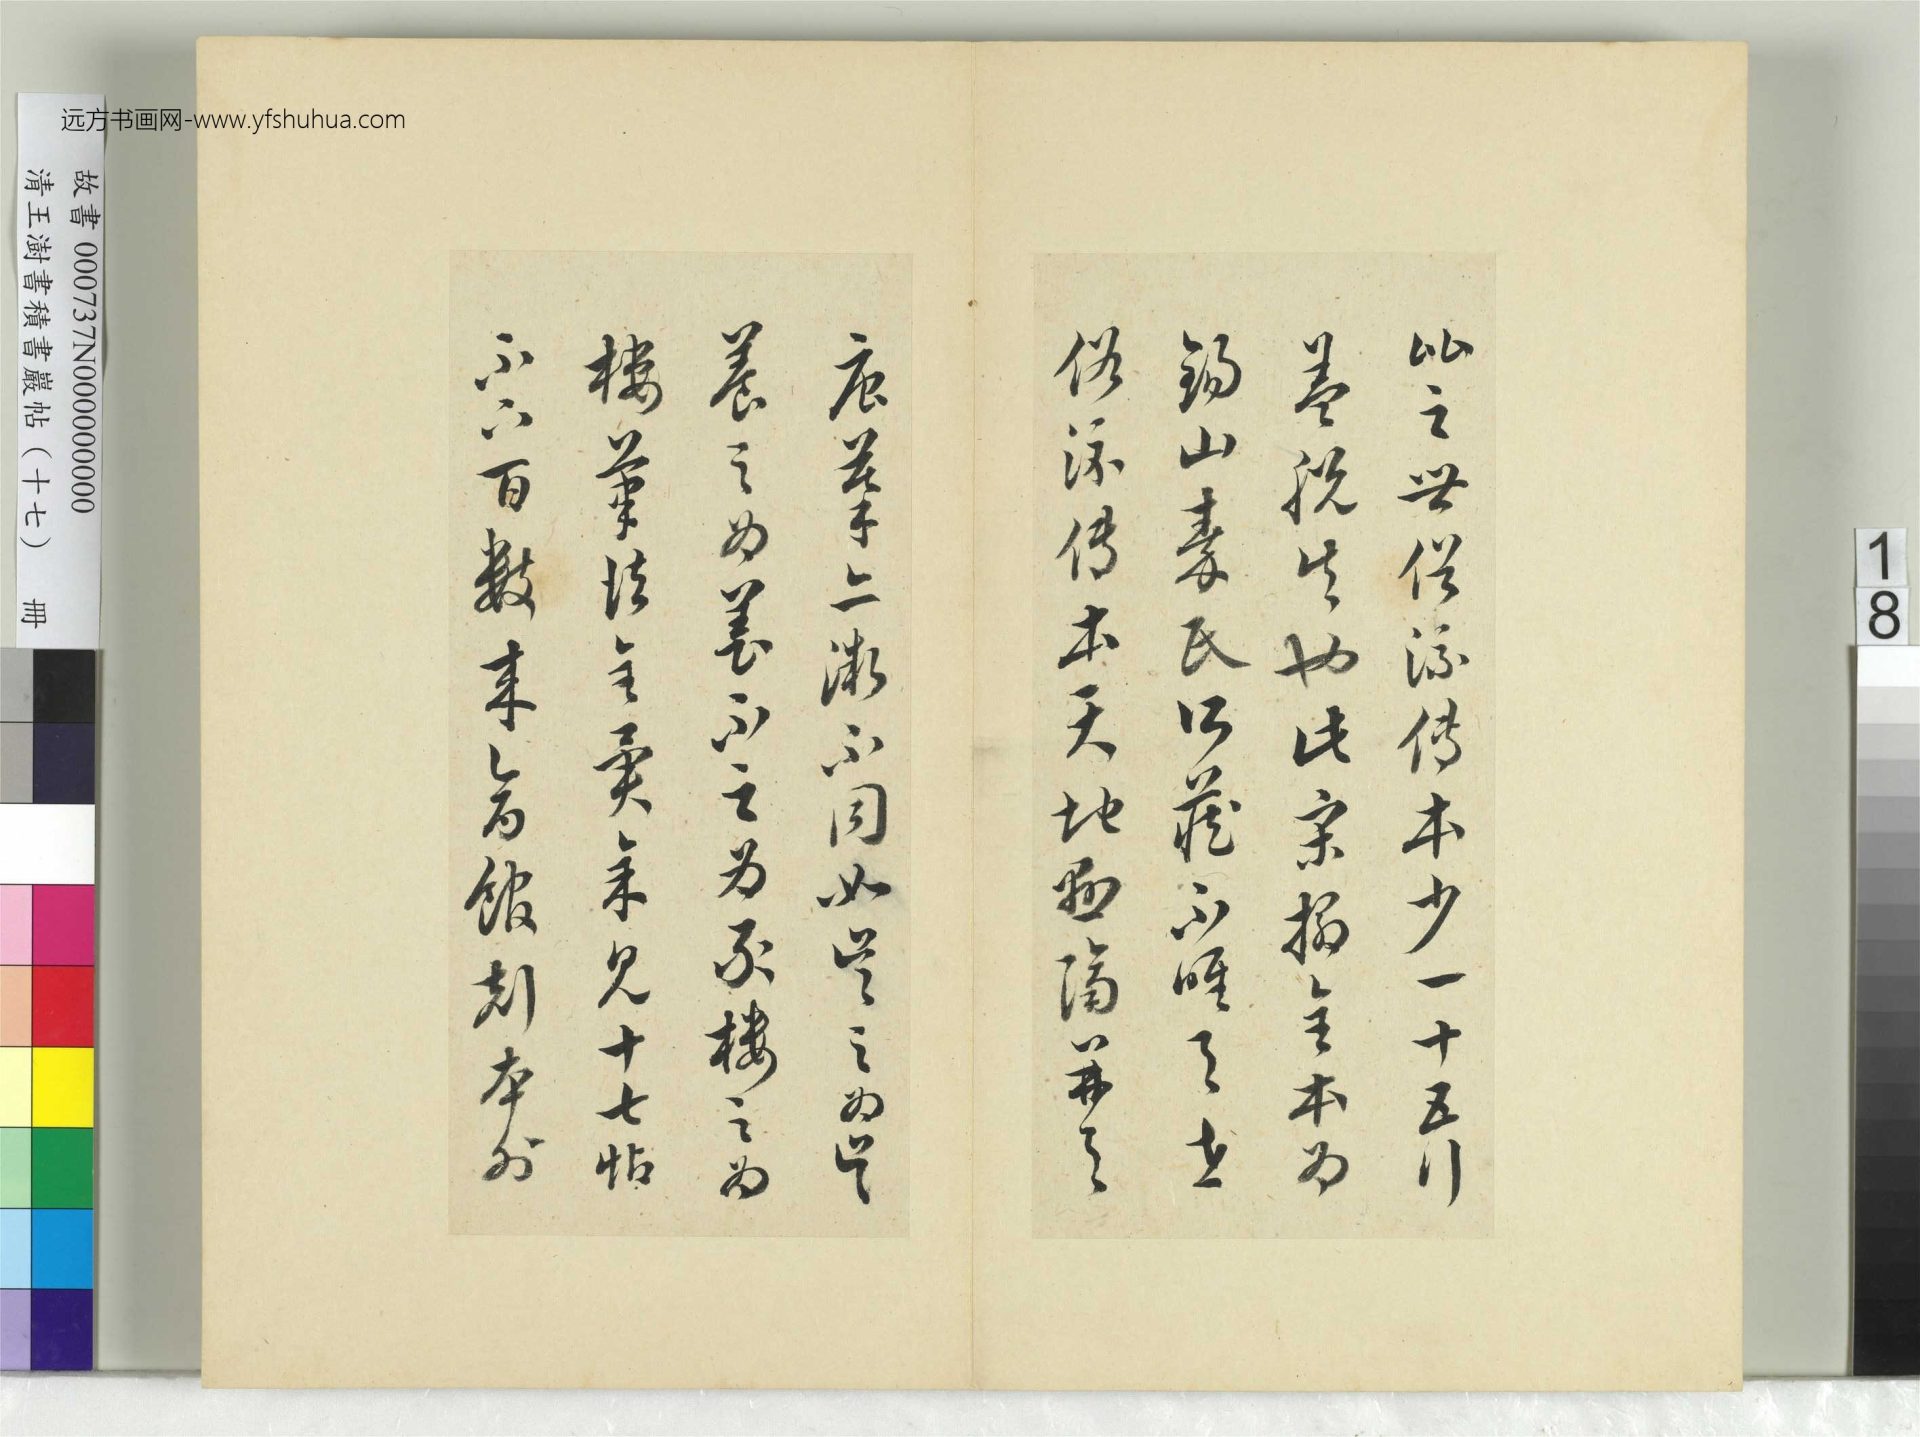 远方书画网-www.yfshuhua.com
故書 000737N000000000
清王澍書積書巖帖（十七） 冊
18
此之世俗流傳本少一十五行
蓋脫失也此宋搨全本為
錫山秦氏所藏不唯與世
俗流傳本天地懸隔并與
唐摹亦微不同如嘗之為嘗
養之為養不之為不樓之為
樓筆法全異余見十七帖
不下百數未有舘刻本